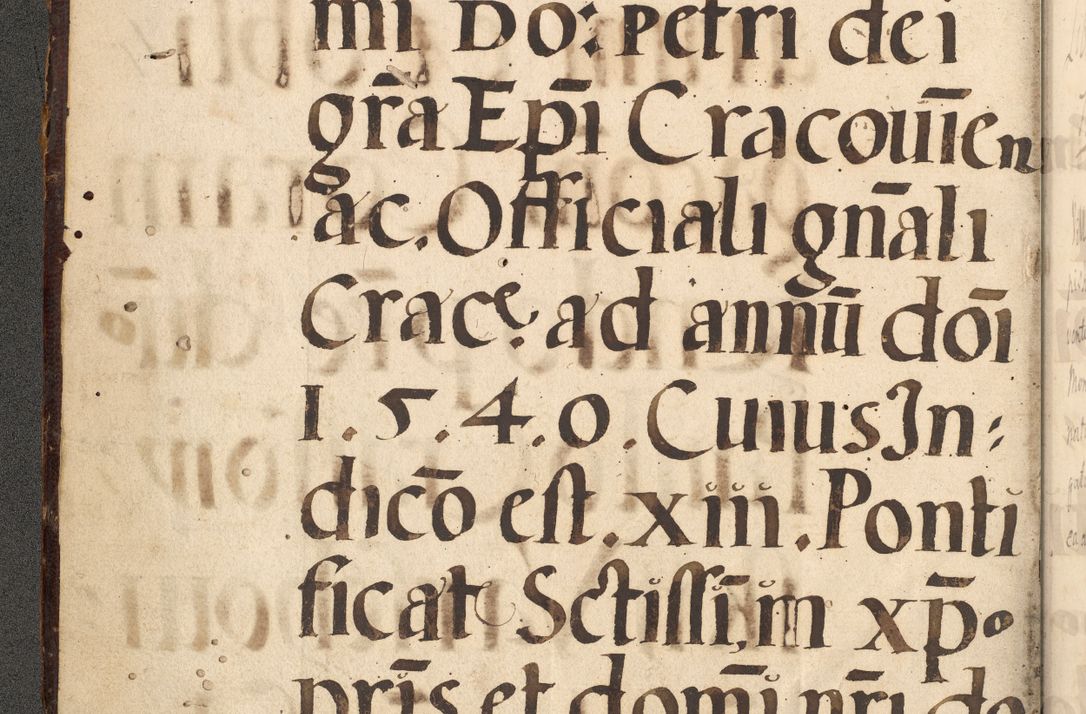 mi Do: Petri dei
gr̄a Ep̄i Cracouīen
ac. Officiali gn̄ali
Cracͤ. ad annū dōi
1.5.4.0. Cuius In:
dicō est. xiii. Ponti
ficat Sctissī,m xp̄o
pr̄is et domī nr̄i do